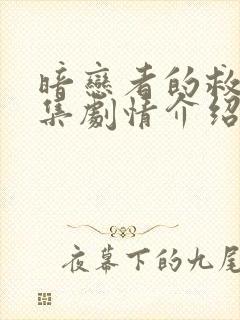 暗戀者的救
集劇情介紹
夜幕下的九尾